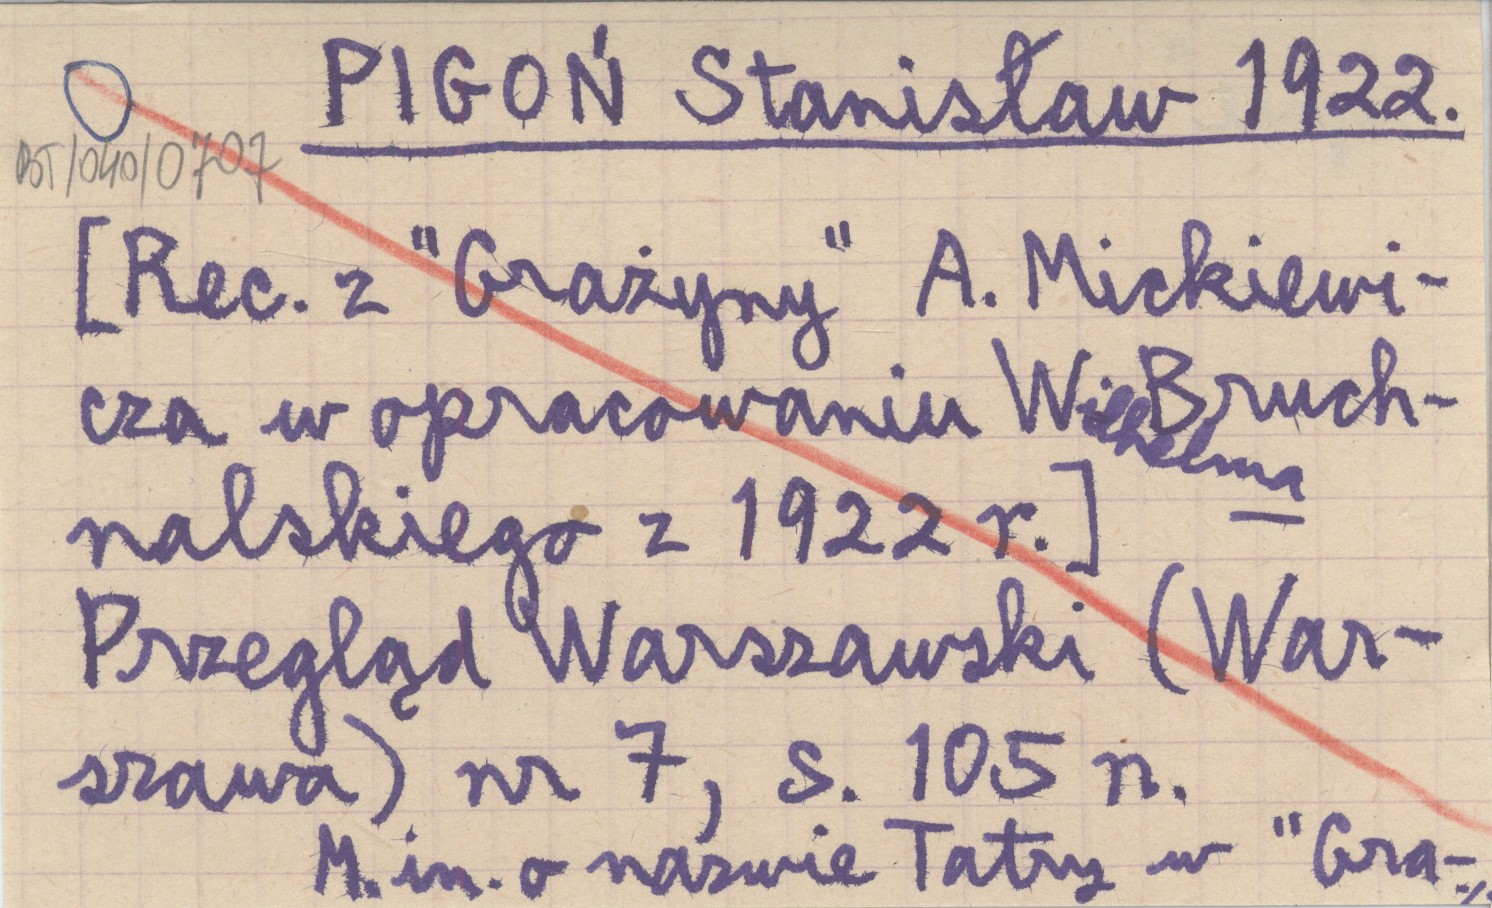 PIGOŃ Stanisław 1922.
BOT/040/0707
[Rec. z "Grażyny" A. Mickiewi-
cza w opracowaniu Wilhelma Bruch-
nalskiego z 1922 r.]
Przegląd Warszawski (War-
szawa) nr 7, s. 105 n.
M.in. o nazwie Tatry w "Gra-
./.